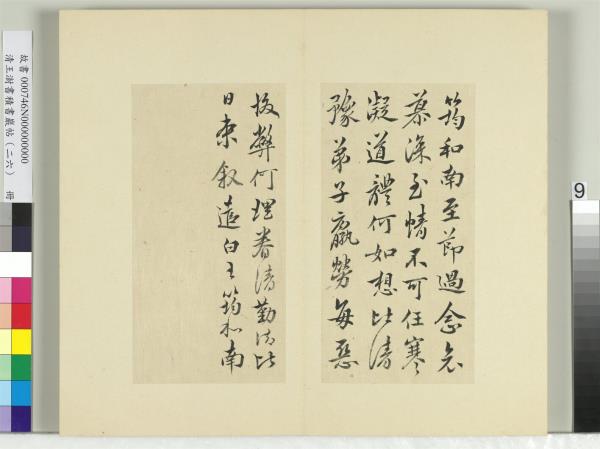 筠和南至節過念念
慕深至情不可任寒
凝道體何如想比清
豫弟子羸勞每惡
極弊何理眷清勤法比
日來敘遣白王筠和南
故書 000746N000000000
清王澍書積書巖帖(二六) 冊
9